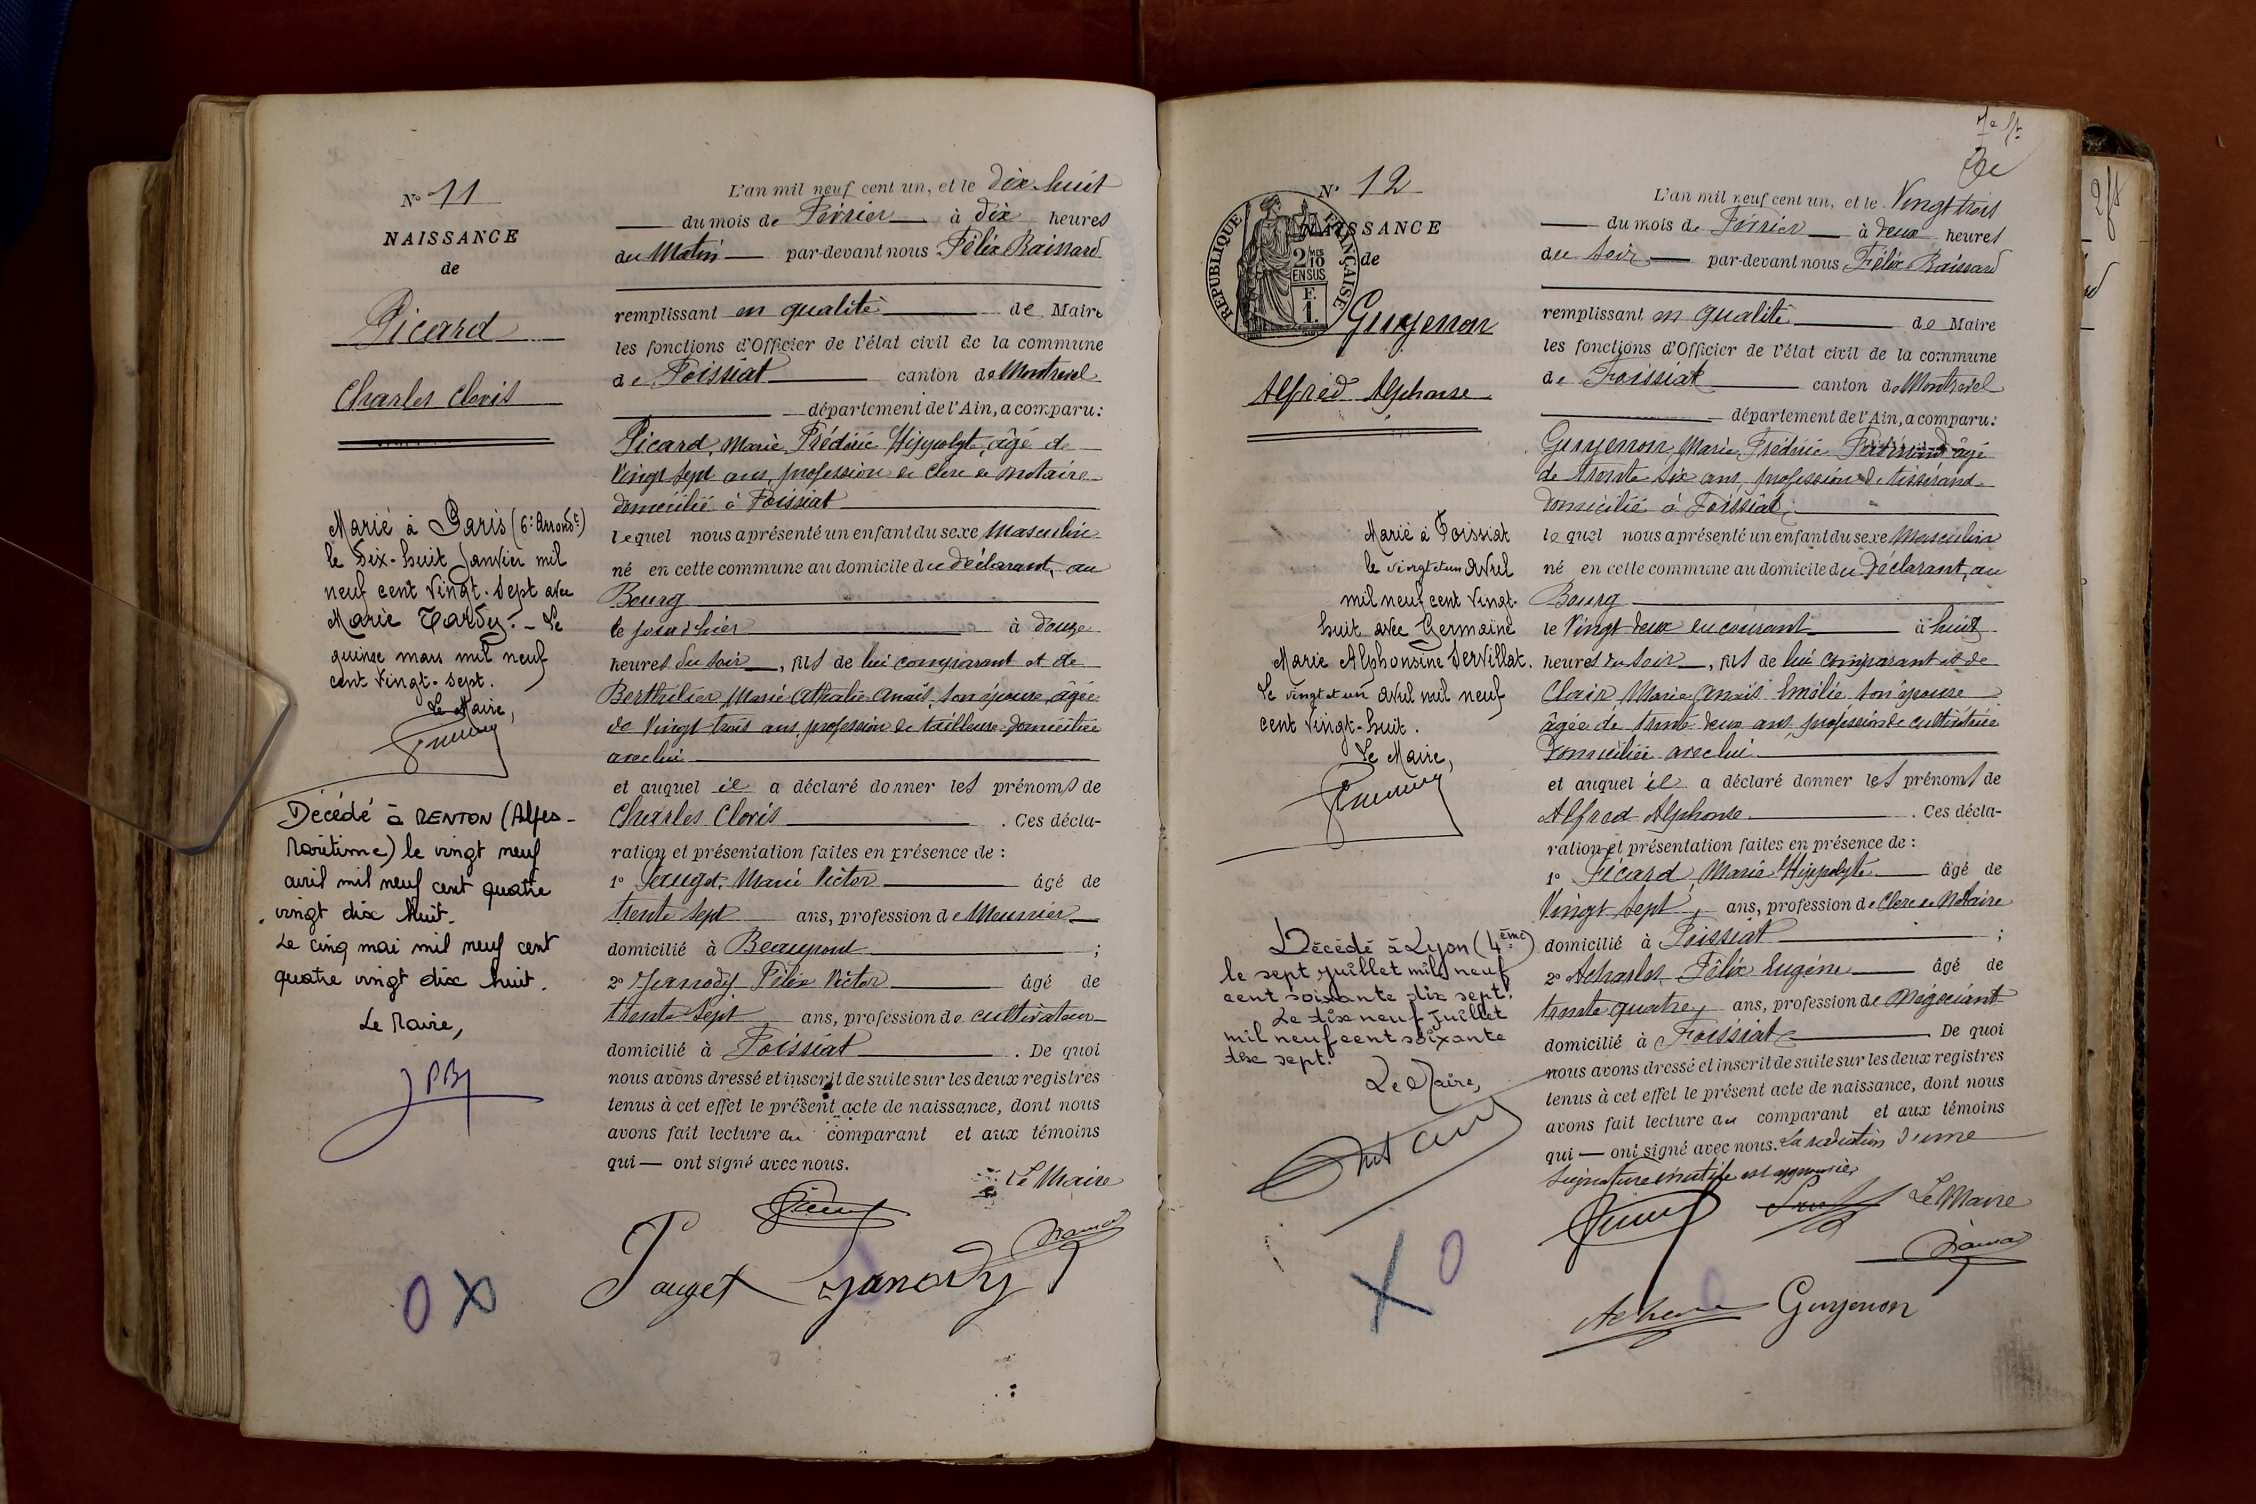 N° 11
NAISSANCE
de
Picard
Charles Clovis
Marié à Paris (6e Arrondt)
le Dix-huit Janvier mil
neuf cent Vingt-Sept avec
Marie Tardy. - Le
quinze mars mil neuf
cent Vingt-Sept.
Le Maire,
Décédé à MENTON (Alpes-
Maritime) le vingt neuf
avril mil neuf cent quatre
vingt dix huit.
Le cinq mai mil neuf cent
quatre vingt dix huit.
Le Maire,
L'an mil neuf cent un, et le dix-huit
du mois de Février à dix heures
du Matin par-devant nous Félix Baissard
remplissant en qualité de Maire
les fonctions d'Officier de l'état civil de la commune
de Foissiat canton de Montrevel
département de l'Ain, a comparu:
Picard, Marie Frédéric Hippolyte, âgé de
Vingt Sept ans, profession de Clerc de notaire
domicilié à Foissiat
lequel nous a présenté un enfant du sexe Masculin
né en cette commune au domicile du déclarant, au
Bourg
le jour d'hier à douze
heures du soir, fils de lui comparant et de
Berthilier Marie Athalie Anaïs, son épouse, âgée
de Vingt trois ans, profession de tailleuse domiciliée
avec lui
et auquel il a déclaré donner les prénoms de
Charles Clovis . Ces décla-
ration et présentation faites en présence de :
1° Pauget, Marie Victor âgé de
trente Sept ans, profession de Meunier
domicilié à Beaupont ;
2° Janody Félix Victor âgé de
trente Sept ans, profession de cultivateur
domicilié à Foissiat . De quoi
nous avons dressé et inscrit de suite sur les deux registres
tenus à cet effet le présent acte de naissance, dont nous
avons fait lecture au comparant et aux témoins
qui — ont signé avec nous.
Le Maire
Pauget Janody
O X
N° 12
NAISSANCE
de
RÉPUBLIQUE FRANÇAISE
2 MES 10
EN SUS
F.
1.
Guyenon
Alfred Alphonse
Marié à Foissiat
le vingt et un Avril
mil neuf cent Vingt-
huit avec Germaine
Marie Alphonsine Servillat.
Le vingt et un avril mil neuf
cent Vingt-huit.
Le Maire,
Décédé à Lyon (4ème)
le sept juillet mil neuf
cent soixante dix sept.
Le dix neuf Juillet
mil neuf cent soixante
dix sept.
Le Maire,
X O
L'an mil neuf cent un, et le Vingt trois
du mois de Février à deux heures
du soir par-devant nous Félix Baissard
remplissant en qualité de Maire
les fonctions d'Officier de l'état civil de la commune
de Foissiat canton de Montrevel
département de l'Ain, a comparu:
Guyenon, Marie Frédéric Ferdinand âgé
de trente six ans, profession de tisserand
domicilié à Foissiat
lequel nous a présenté un enfant du sexe Masculin
né en cette commune au domicile du déclarant, au
Bourg
le Vingt deux du courant à huit
heures du soir, fils de lui comparant et de
Clair, Marie Anaïs Emélie son épouse
âgée de trente deux ans, profession de cultivatrice
domiciliée avec lui
et auquel il a déclaré donner les prénoms de
Alfred Alphonse . Ces décla-
ration et présentation faites en présence de :
1° Picard, Marie Hippolyte âgé de
Vingt Sept, ans, profession de Clerc de Notaire
domicilié à Foissiat ;
2° Acharles, Félix Eugène âgé de
trente quatre, ans, profession de Négociant
domicilié à Foissiat De quoi
nous avons dressé et inscrit de suite sur les deux registres
tenus à cet effet le présent acte de naissance, dont nous
avons fait lecture au comparant et aux témoins
qui — ont signé avec nous. La radiation d'une
signature inutile est approuvée
Le Maire
Guyenon